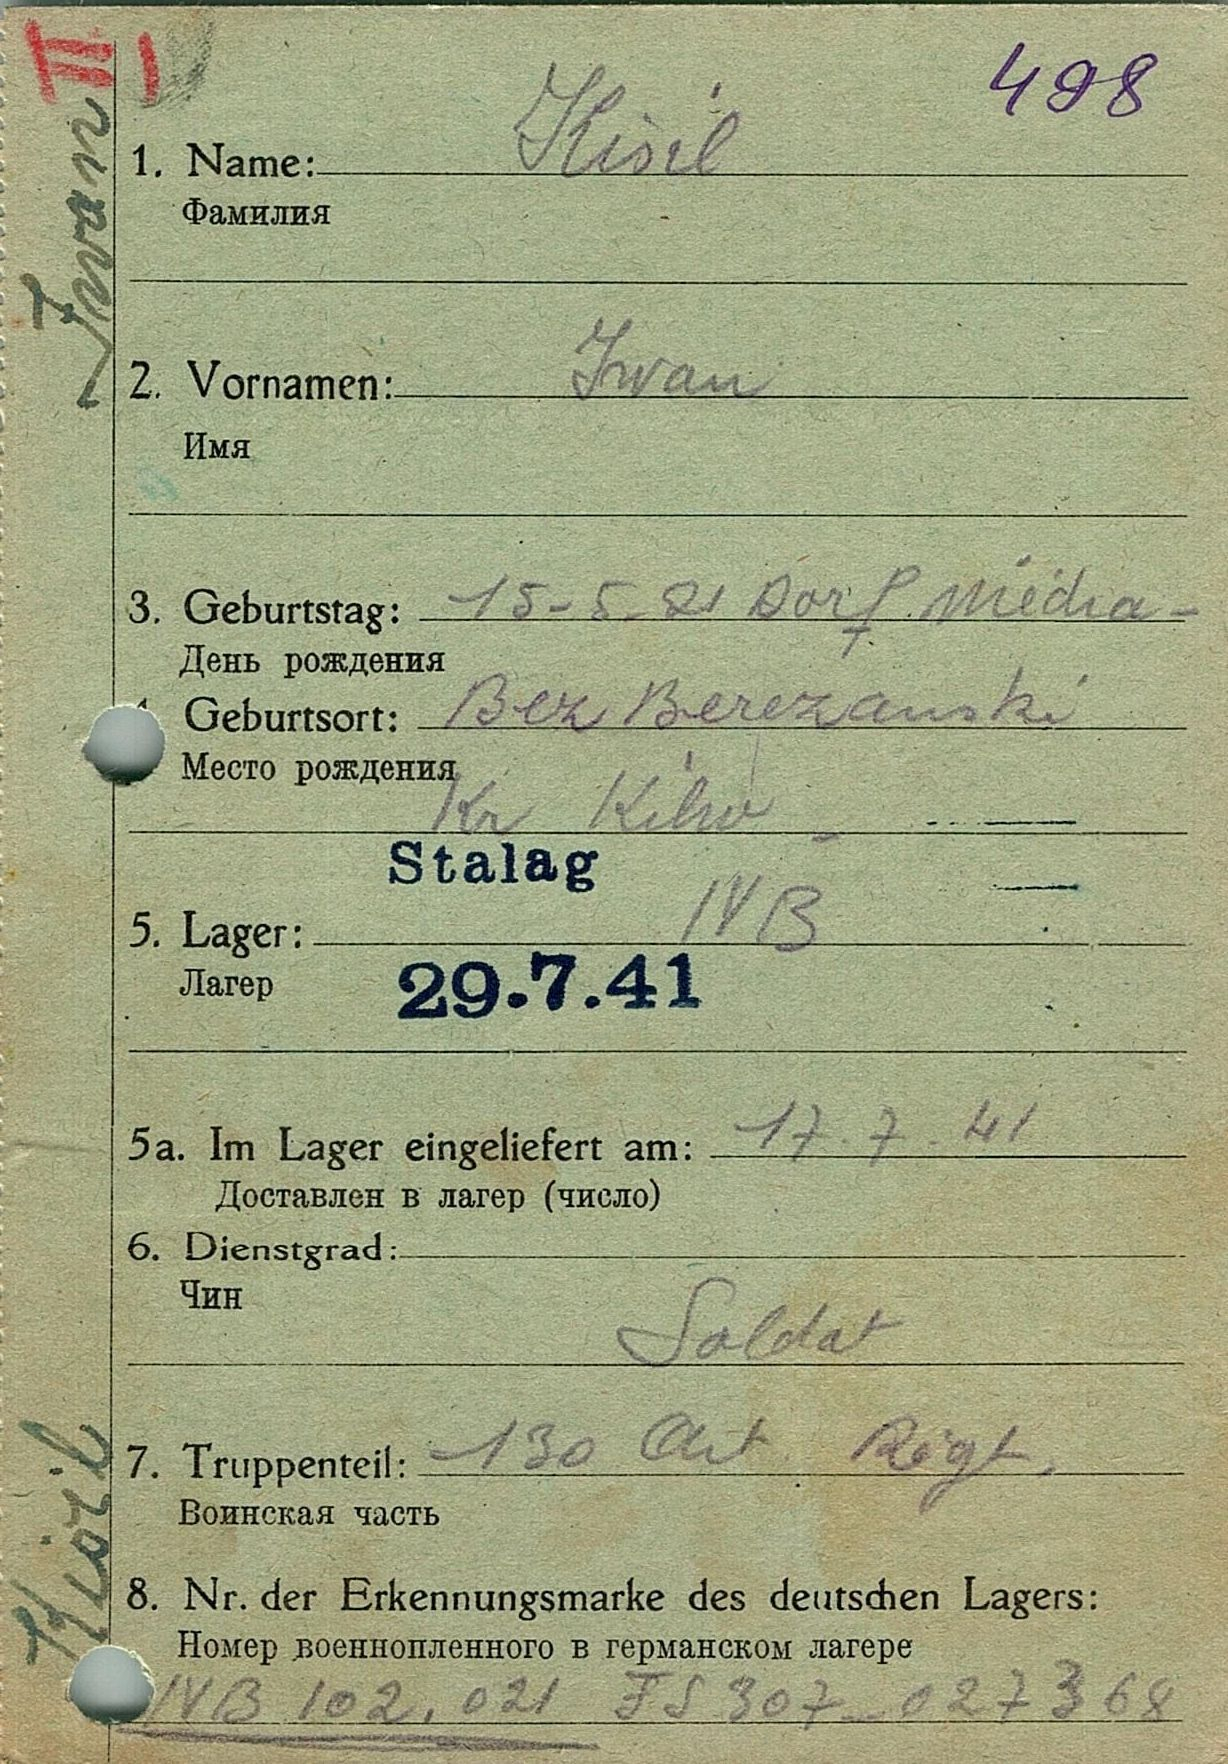 III
498
1. Name: Kisil
Фамилия
2. Vornamen: Iwan
Имя
3. Geburtstag: 15-5-21 Dorf. Media-
День рождения
Geburtsort: Bez Berezanski
Место рождения
Kr
Stalag
5. Lager: IVB
Лагер 29.7.41
5a. Im Lager eingeliefert am: 17.7.41
Доставлен в лагер (число)
6. Dienstgrad:
Чин
Soldat
7. Truppenteil: 130 Art. Regt.
Воинская часть
8. Nr. der Erkennungsmarke des deutschen Lagers:
Номер военнопленного в германском лагере
IVB 102.021 FS 307-027368
Kisil Iwan